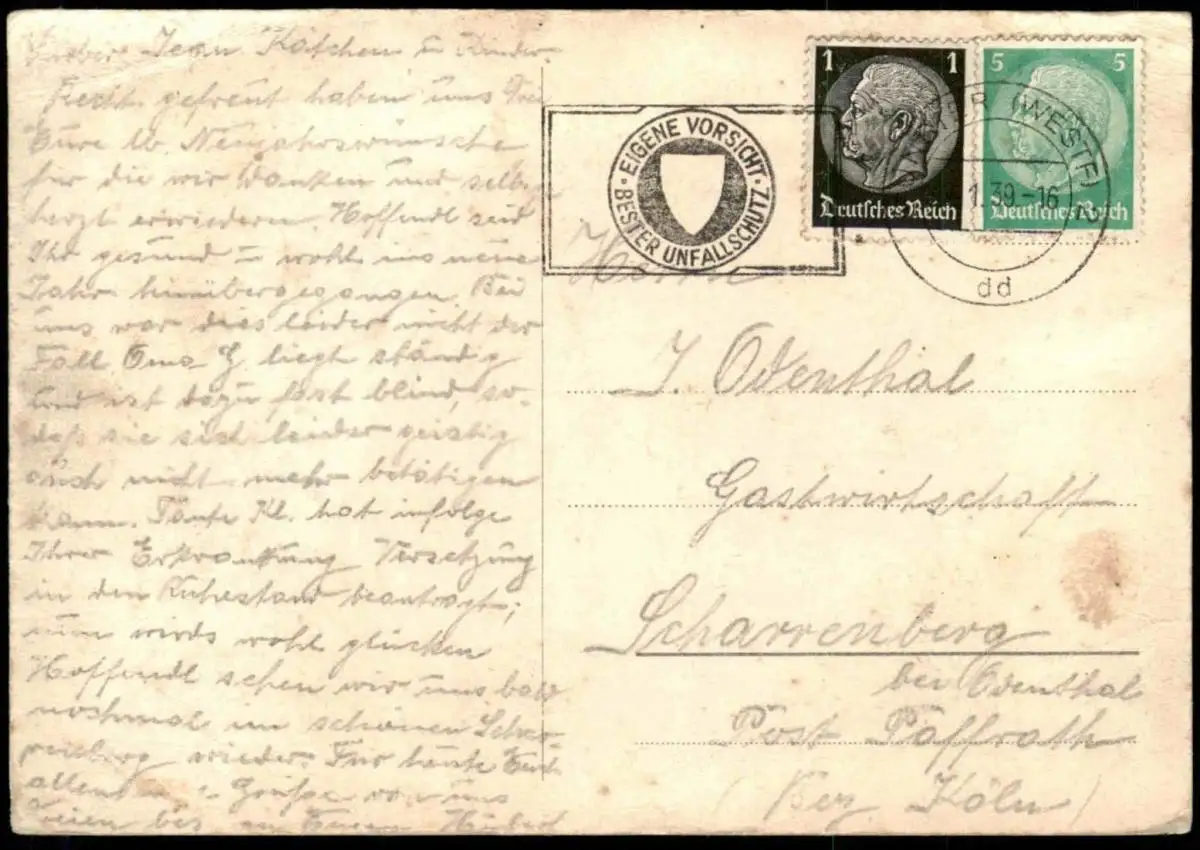 Jean Kätchen u Kinder
Recht gefreut haben uns
Eure lb. Neujahrswünsche
für die wir danken und
herzl erwiedern Hoffendl seid
Ihr gesund u wohl ins neue
Jahr hinübergegangen. Bei
uns war dies leider nicht der
Fall Oma G. liegt ständig
und ist dazu fast blind, so-
daß sie sich leider geistig
auch nicht mehr betätigen
kann. Tante Kl. hat infolge
Ihrer Erkrankung Versetzung
in den Ruhestand beantragt;
nun wirds wohl glücken
Hoffendl sehen wir uns bald
nochmal im schönen
wieder. Für heute Euch
allen Grüße von uns
EIGENE VORSICHT
BESTER UNFALLSCHUTZ
1 1
Deutsches Reich
5 5
Deutsches Reich
(WESTF)
1.39-16
dd
Herrn
J. Odenthal
Gastwirtschaft
Scharrenberg
bei Odenthal
Post Paffrath
(Bez. Köln)